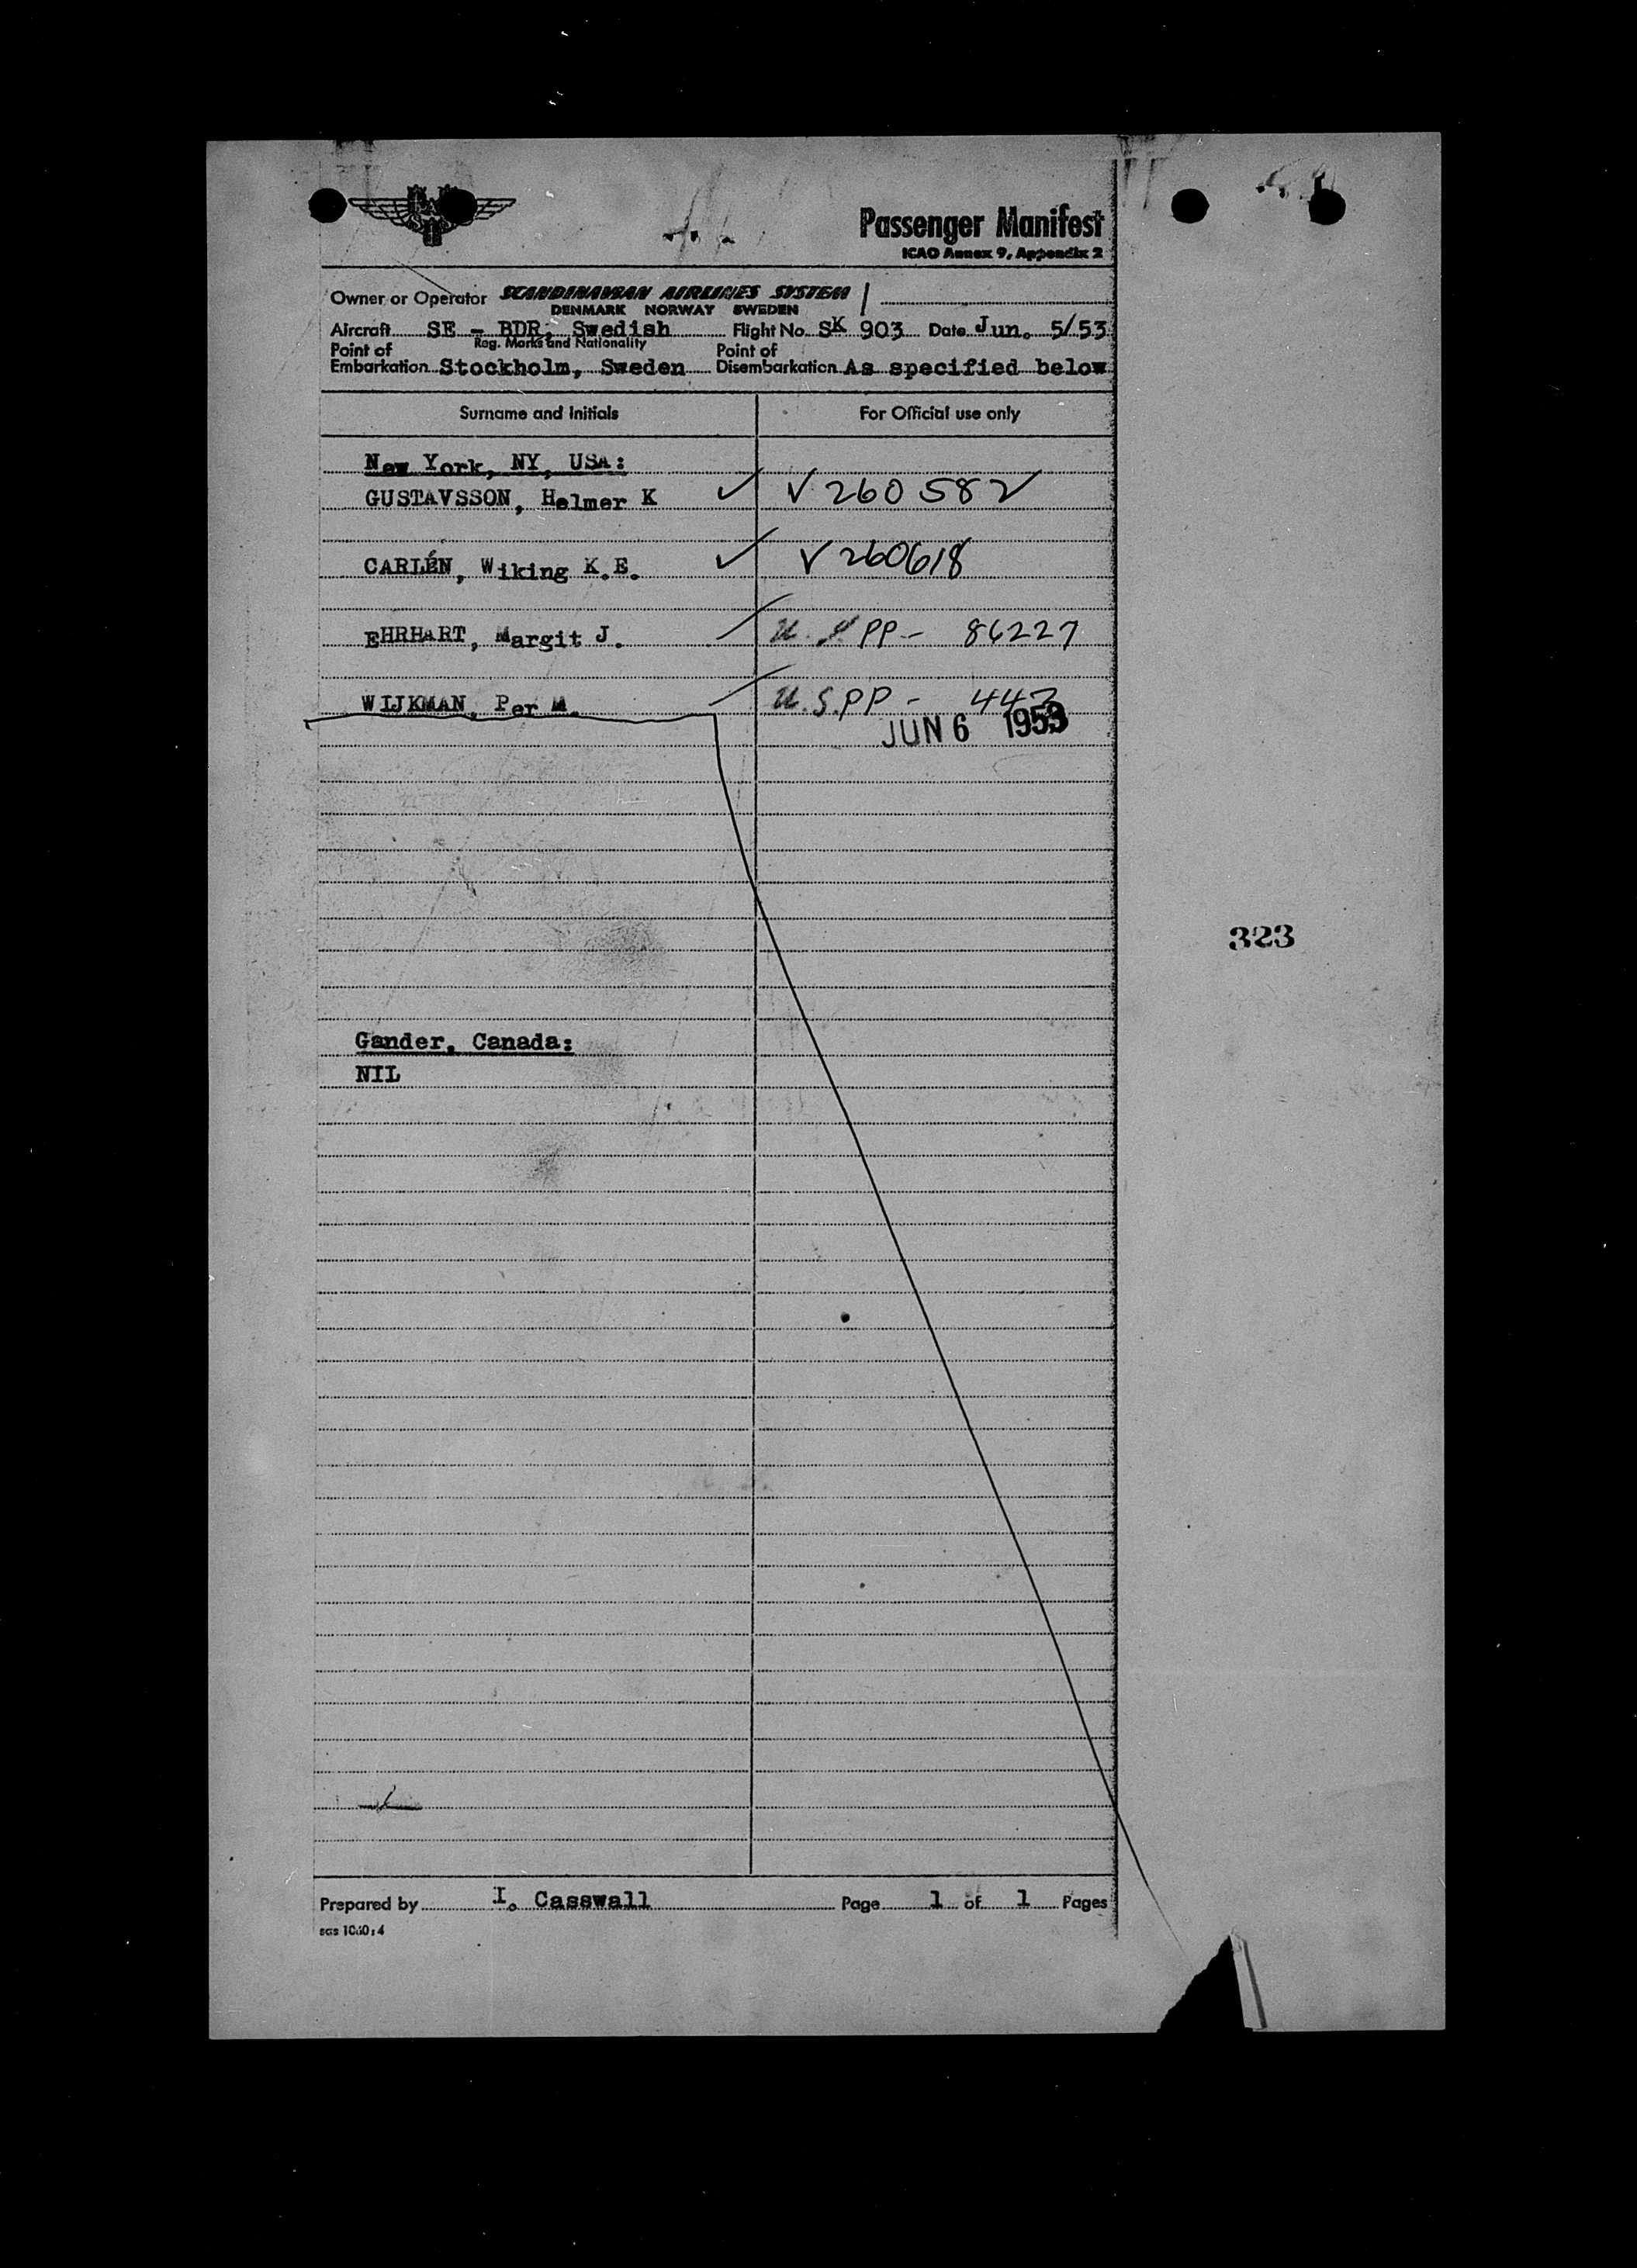 Passenger Manifest
ICAO Annex 9, Appendix 2
Owner or Operator SCANDINAVIAN AIRLINES SYSTEM
DENMARK NORWAY SWEDEN
Aircraft SE - BDR, Swedish Flight No. SK 903 Date Jun. 5/53
Reg. Marks and Nationality
Point of Embarkation Stockholm, Sweden Point of Disembarkation As specified below
Surname and Initials For Official use only
New York, NY, USA:
GUSTAVSSON, Helmer K ✓ V 260582
CARLÉN, Wiking K.E. ✓ V 260618
EHRHART, Margit J. U.S. PP - 86227
WIJKMAN, Per M. U.S. PP - 443
JUN 6 1953
323
Gander, Canada:
NIL
Prepared by I. Casswall Page 1 of 1 Pages